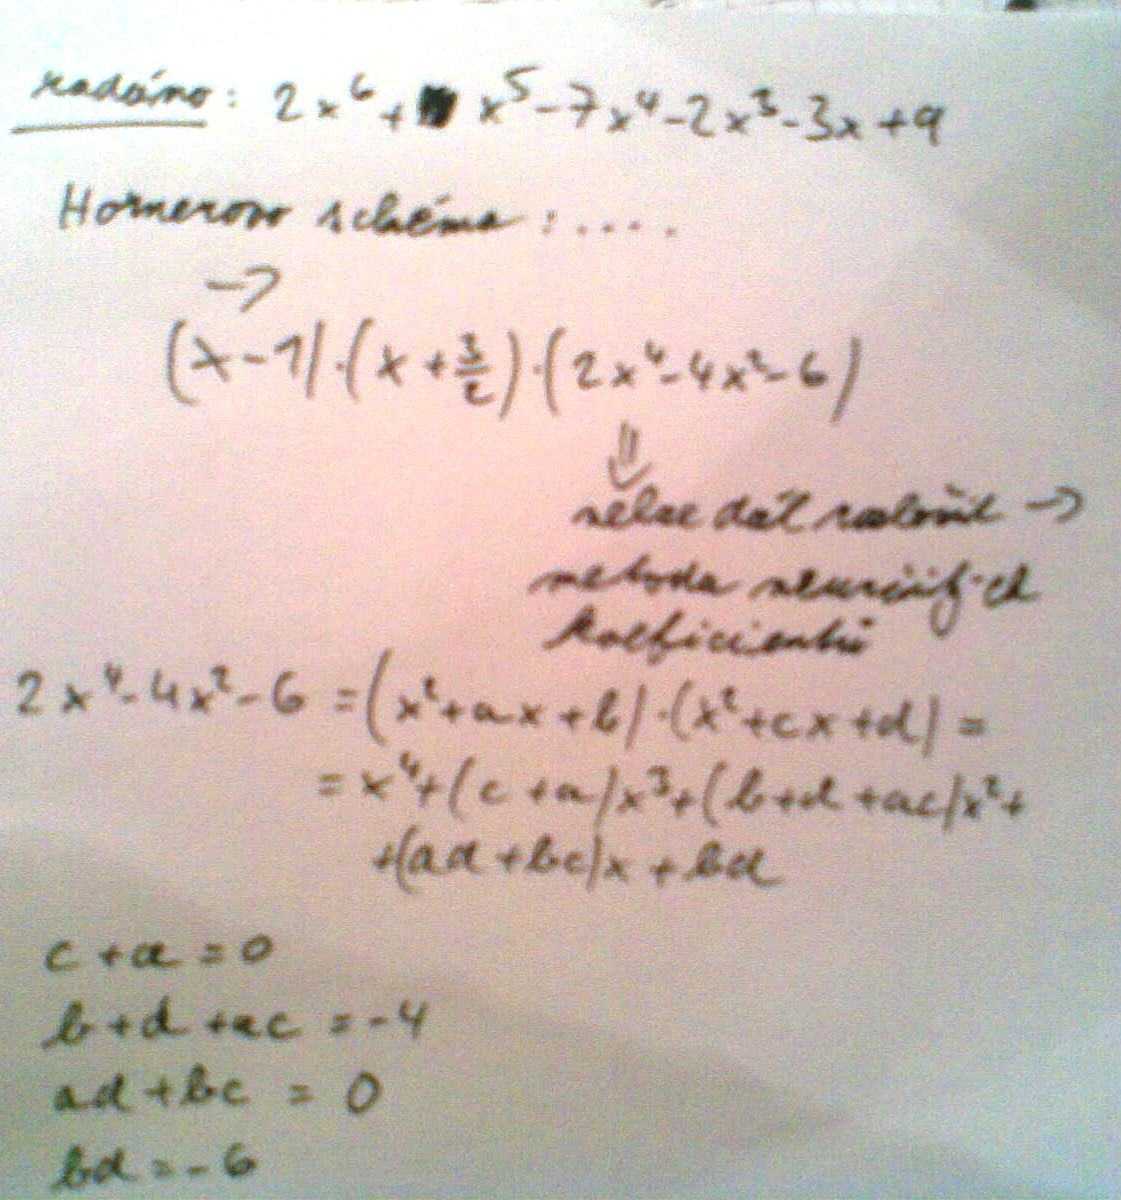 zadáno: 2x⁶ + x⁵ - 7x⁴ - 2x³ - 3x + 9
Hornerovo schéma : ....
→
(x - 1) · (x + 3/2) · (2x⁴ - 4x² - 6)
⇓
nelze dál rozložit →
metoda neurčitých
koeficientů
2x⁴ - 4x² - 6 = (x² + ax + b) · (x² + cx + d) =
= x⁴ + (c + a)x³ + (b + d + ac)x² +
+ (ad + bc)x + bd
c + a = 0
b + d + ac = -4
ad + bc = 0
bd = -6